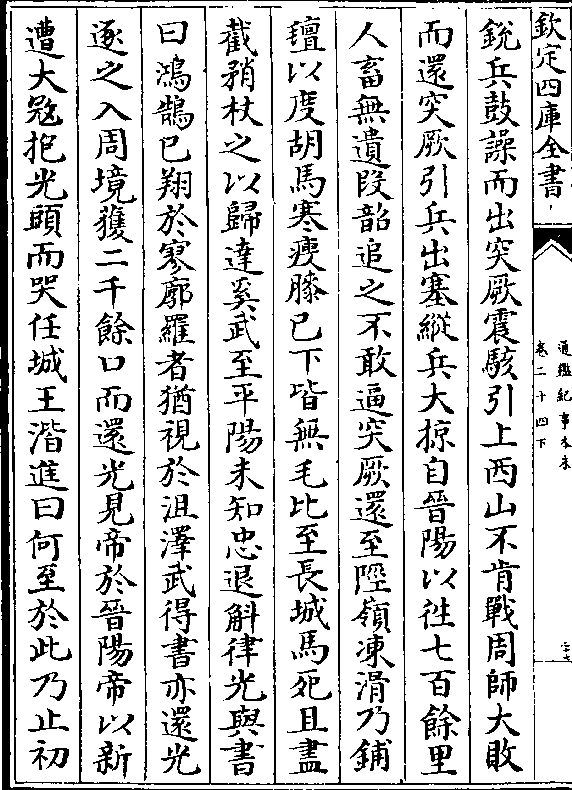 欽定四庫全書
通鑑紀事本末
卷二十四下
二十七
銳兵鼓譟而出突厥震駭引上西山不肯戰周師大敗
而還突厥引兵出塞縱兵大掠自晉陽以往七百餘里
人畜無遺段韶追之不敢逼突厥還至陘嶺凍滑乃鋪
氊以度胡馬寒瘦膝已下皆無毛比至長城馬死且盡
截矟杖之以歸達奚武至平陽未知忠退斛律光與書
曰鴻鵠已翔於寥廓羅者猶視於沮澤武得書亦還光
逐之入周境獲二千餘口而還光見帝於晉陽帝以新
遭大冦抱光頭而哭任城王湝進曰何至於此乃止初